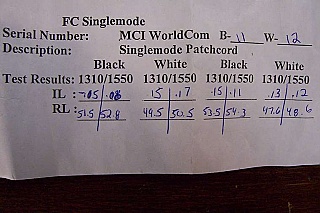 FC Singlemode
Serial Number: MCI WorldCom B-11 W-12
Description: Singlemode Patchcord
Black White Black White
Test Results: 1310/1550 1310/1550 1310/1550 1310/1550
IL: .15 .17 .15 .11 .13 .12
RL: 51.5 52.8 49.5 50.5 53.5 54.3 47.6 48.6